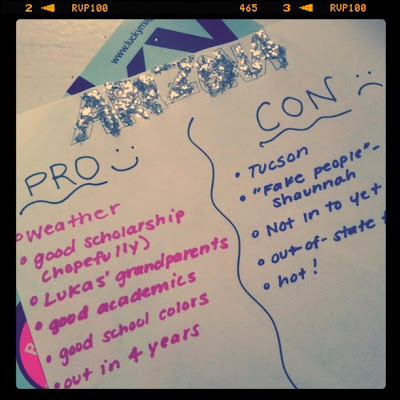 2 RVP100 465 3 RVP100
www.luckyma
ARIZONA
PRO
• Weather
• good scholarship
(hopefully)
• Lukas' grandparents
• good academics
• good school colors
• out in 4 years
CON
• Tucson
• "Fake people"-
shaunnah
• Not in to yet
• out-of-state
• hot!